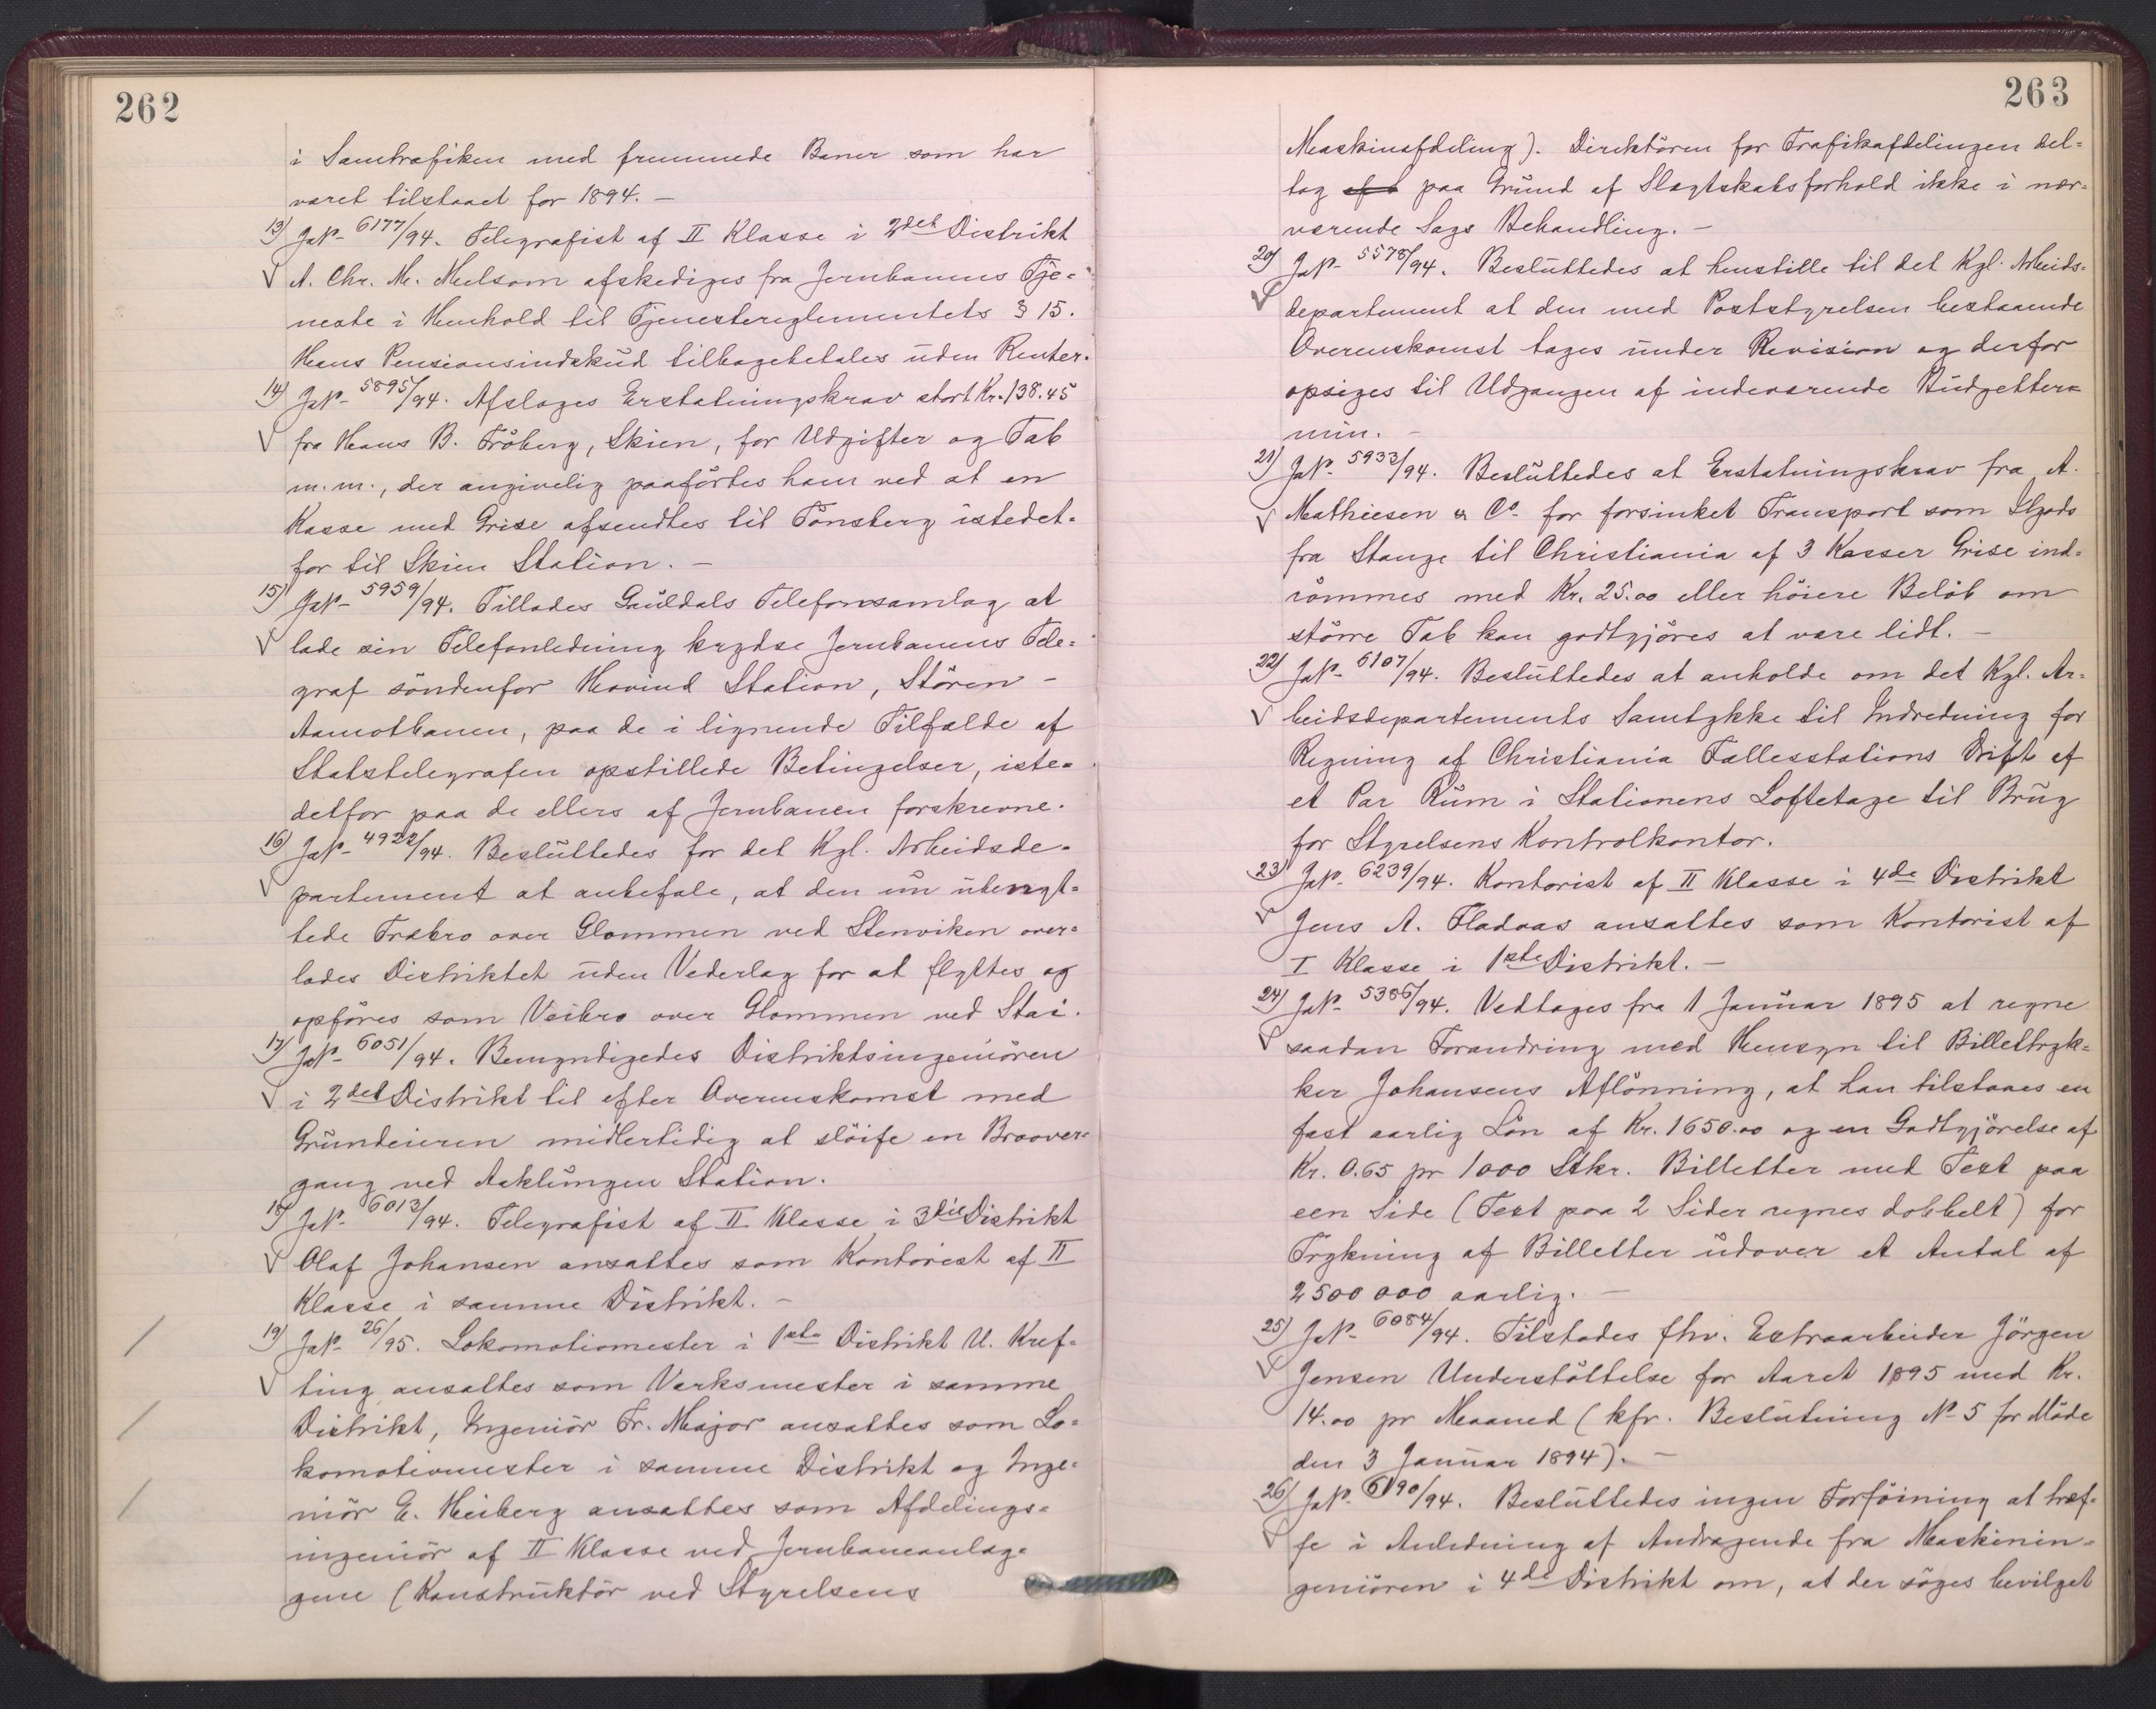 262
i Samtrafiken med fremmede Baner som har
været tilstaaet for 1894. —
13) JNo. 6177/94. Telegrafist af II Klasse i 2det Distrikt
A. Chr. M. Melsom afskediges fra Jernbanens Tje-
neste i Henhold til Tjenestereglementets § 15.
Hans Pensionsindskud tilbagebetales uden Renter.
14) JNo. 5895/94. Afslages Erstatningskrav stort Kr. 138.45
fra Hans B. Fröberg, Skien, for Udgifter og Tab
m.m., der angivelig paaförtes ham ved at en
Kasse med Grise afsendtes til Tönsberg istedet-
for til Skien Station. —
15) JNo. 5959/94. Tillades Gauldals Telefonsamlag at
lade sin Telefonledning krydse Jernbanens Tele-
graf söndenfor Hovind Station, Stören -
Aamotbanen, paa de i lignende Tilfælde af
Statstelegrafen opstillede Betingelser, iste-
detfor paa de ellers af Jernbanen forskrevne.
16) JNo. 4922/94. Besluttedes for det Kgl. Arbeidsde-
partement at anbefale, at den nu ubenyt-
tede Træbro over Glommen ved Stenviken over-
lades Distriktet uden Vederlag for at flyttes og
opföres som Veibro over Glommen ved Stai.
17) JNo. 6051/94. Bemyndigedes Distriktsingeniören
i 2det Distrikt til efter Overenskomst med
Grundeieren midlertidig at slöife en Broover-
gang ved Aaklungen Station.
18) JNo. 6013/94. Telegrafist af II Klasse i 3die Distrikt
Olaf Johansen ansattes som Kontorist af II
Klasse i samme Distrikt. —
19) JNo. 26/95. Lokomotivmester i 1ste Distrikt U. Kref-
ting ansattes som Værksmester i samme
Distrikt, Ingeniör Fr. Major ansattes som Lo-
komotivmester i samme Distrikt og Inge-
niör E. Heiberg ansattes som Afdelings-
ingeniör af II Klasse ved Jernbaneanlæg-
gene (Konstruktör ved Styrelsens
263
Maskinafdeling). Direktören for Trafikafdelingen del-
tog paa Grund af Slægtskabsforhold ikke i nær-
værende Sags Behandling. —
20) JNo. 5578/94. Besluttedes at henstille til det Kgl. Arbeids-
departement at den med Poststyrelsen bestaaende
Overenskomst tages under Revision og derfor
opsiges til Udgangen af indeværende Budgetter-
min. —
21) JNo. 5933/94. Besluttedes at Erstatningskrav fra A.
Mathiesen & Co. for forsinket Transport som Ilgods
fra Stange til Christiania af 3 Kasser Grise ind-
römmes med Kr. 25.00 eller höiere Belöb om
större Tab kan godtgjöres at være lidt. —
22) JNo. 6107/94. Besluttedes at anholde om det Kgl. Ar-
beidsdepartements Samtykke til Indredning for
Regning af Christiania Fællesstations Drift af
et Par Rum i Stationens Loftetage til Brug
for Styrelsens Kontrolkontor.
23) JNo. 6239/94. Kontorist af II Klasse i 4de Distrikt
Jens A. Fladaas ansattes som Kontorist af
I Klasse i 1ste Distrikt. —
24) JNo. 5386/94. Vedtages fra 1 Januar 1895 at regne
saadan Forandring med Hensyn til Billettryk-
ker Johansens Aflönning, at han tilstaaes en
fast aarlig Lön af Kr. 1650.00 og en Godtgjörelse af
Kr. 0.65 pr 1000 Stkr. Billetter med Text paa
een Side (Text paa 2 Sider regnes dobbelt) for
Trykning af Billetter udover et Antal af
2500000 aarlig. —
25) JNo. 6084/94. Tilstodes fhv. Extraarbeider Jörgen
Jensen Understöttelse for Aaret 1895 med Kr.
14.00 pr Maaned (kfr. Beslutning No 5 for Möde
den 3 Januar 1894). —
26) JNo. 6190/94. Besluttedes ingen Forföining at træf-
fe i Anledning af Andragende fra Maskinin-
geniören i 4de Distrikt om, at der söges bevilget